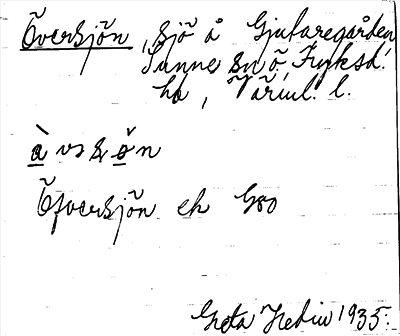 Översjön, sjö å Gjutaregården,
Sunne sn ö, Fryksd.
hd, Värml. l.
Öfversjön ek G80
Greta Hedin 1935.